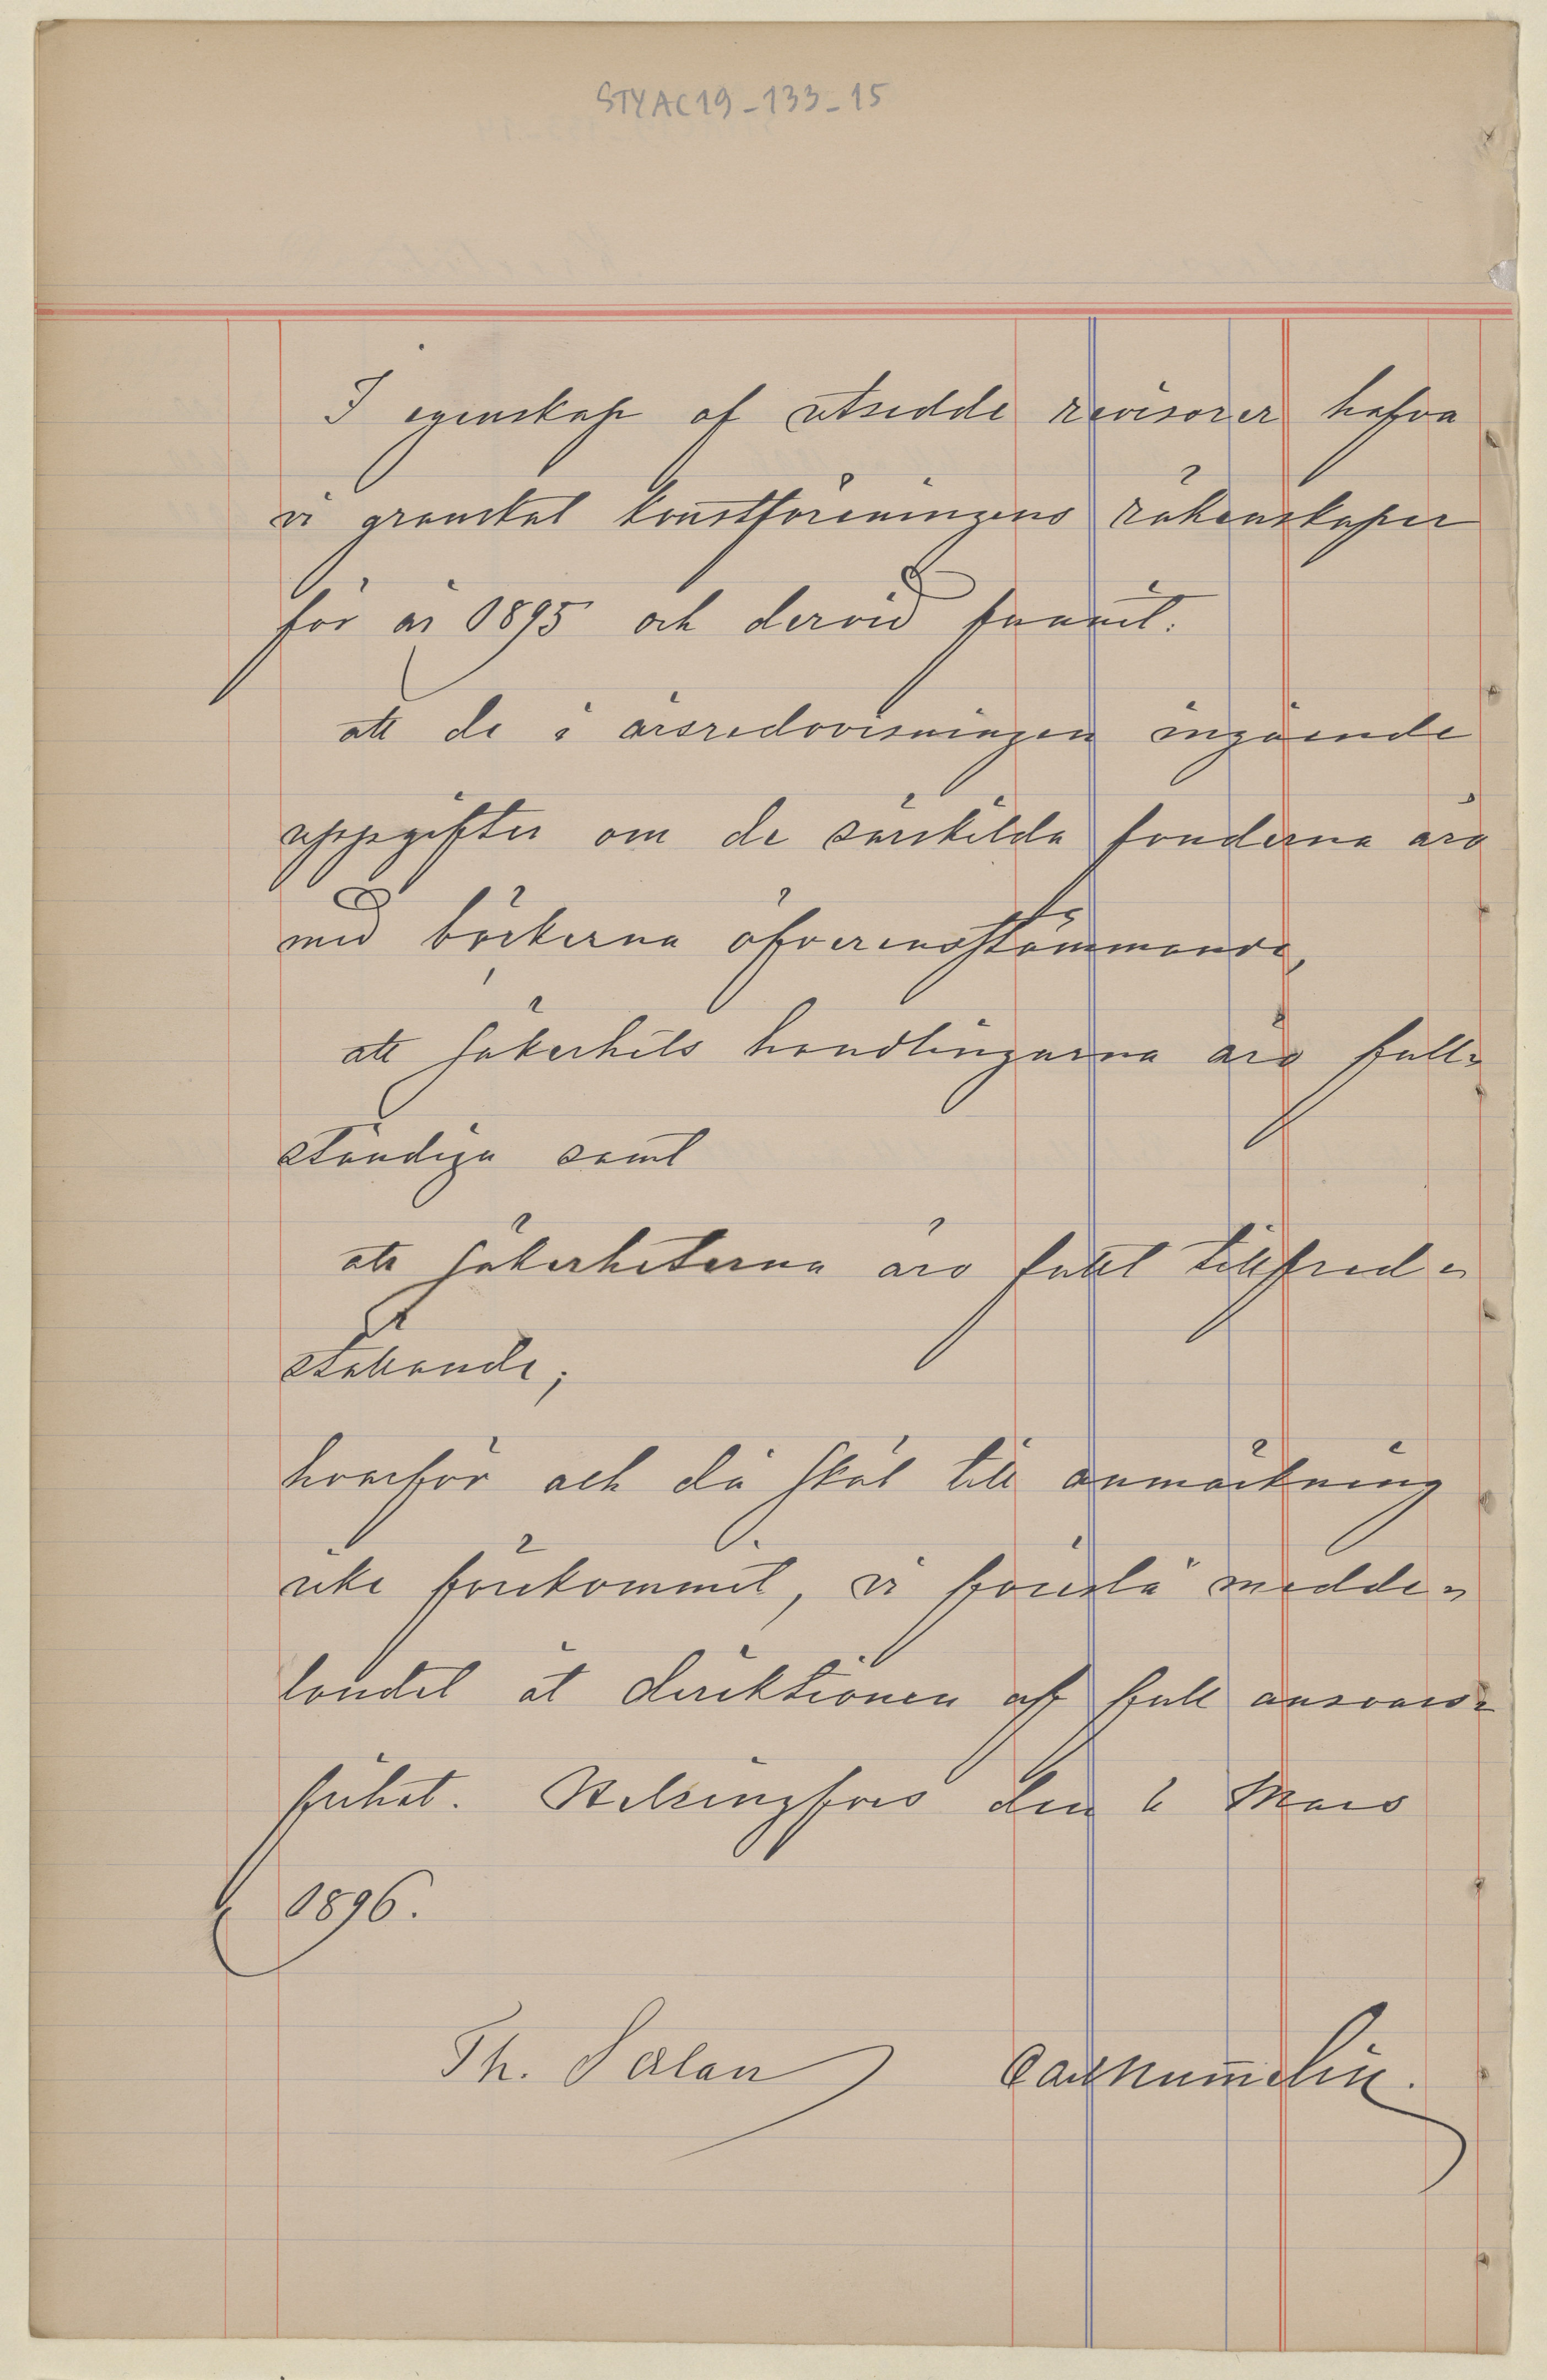 STYAC19-133-15
I egenskap af utsedde revisorer hafva
vi granskat konstföreningens räkenskaper
för år 1895 och dervid funnit:
att de i årsredovisningen ingående
uppgifter om de särskilda fonderna äro
med böckerna öfverensstämmande,
att säkerhets handlingarna äro full-
ständiga samt
att säkerheterna äro fullt tillfred-
ställande;
hvarför och då skäl till anmärkning
icke förekommit, vi föreslå medde-
landet åt direktionen af full ansvars-
frihet. Helsingfors den 6 Mars
1896.
Th. Sælan Carl Nummelin.